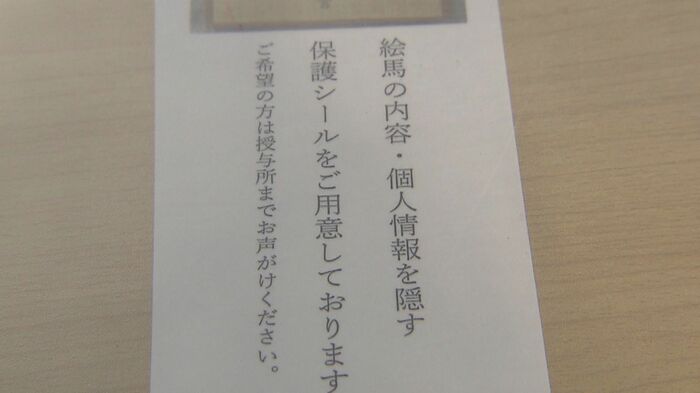 絵馬の内容・個人情報を隠す
保護シールをご用意しております
ご希望の方は授与所までお声がけください。